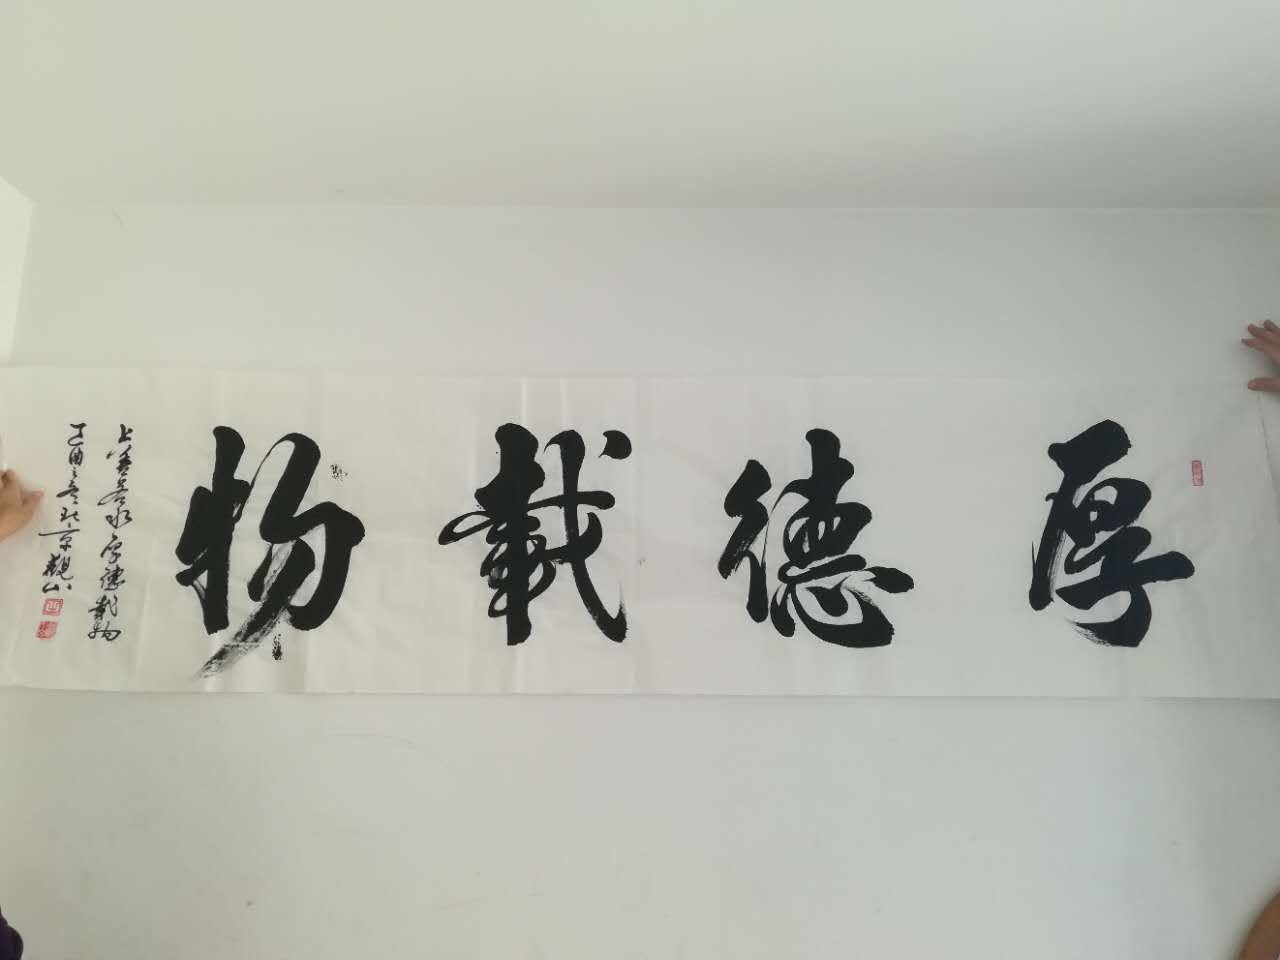 厚德載物
上善若水厚德載物
丁酉之冬北京觀山